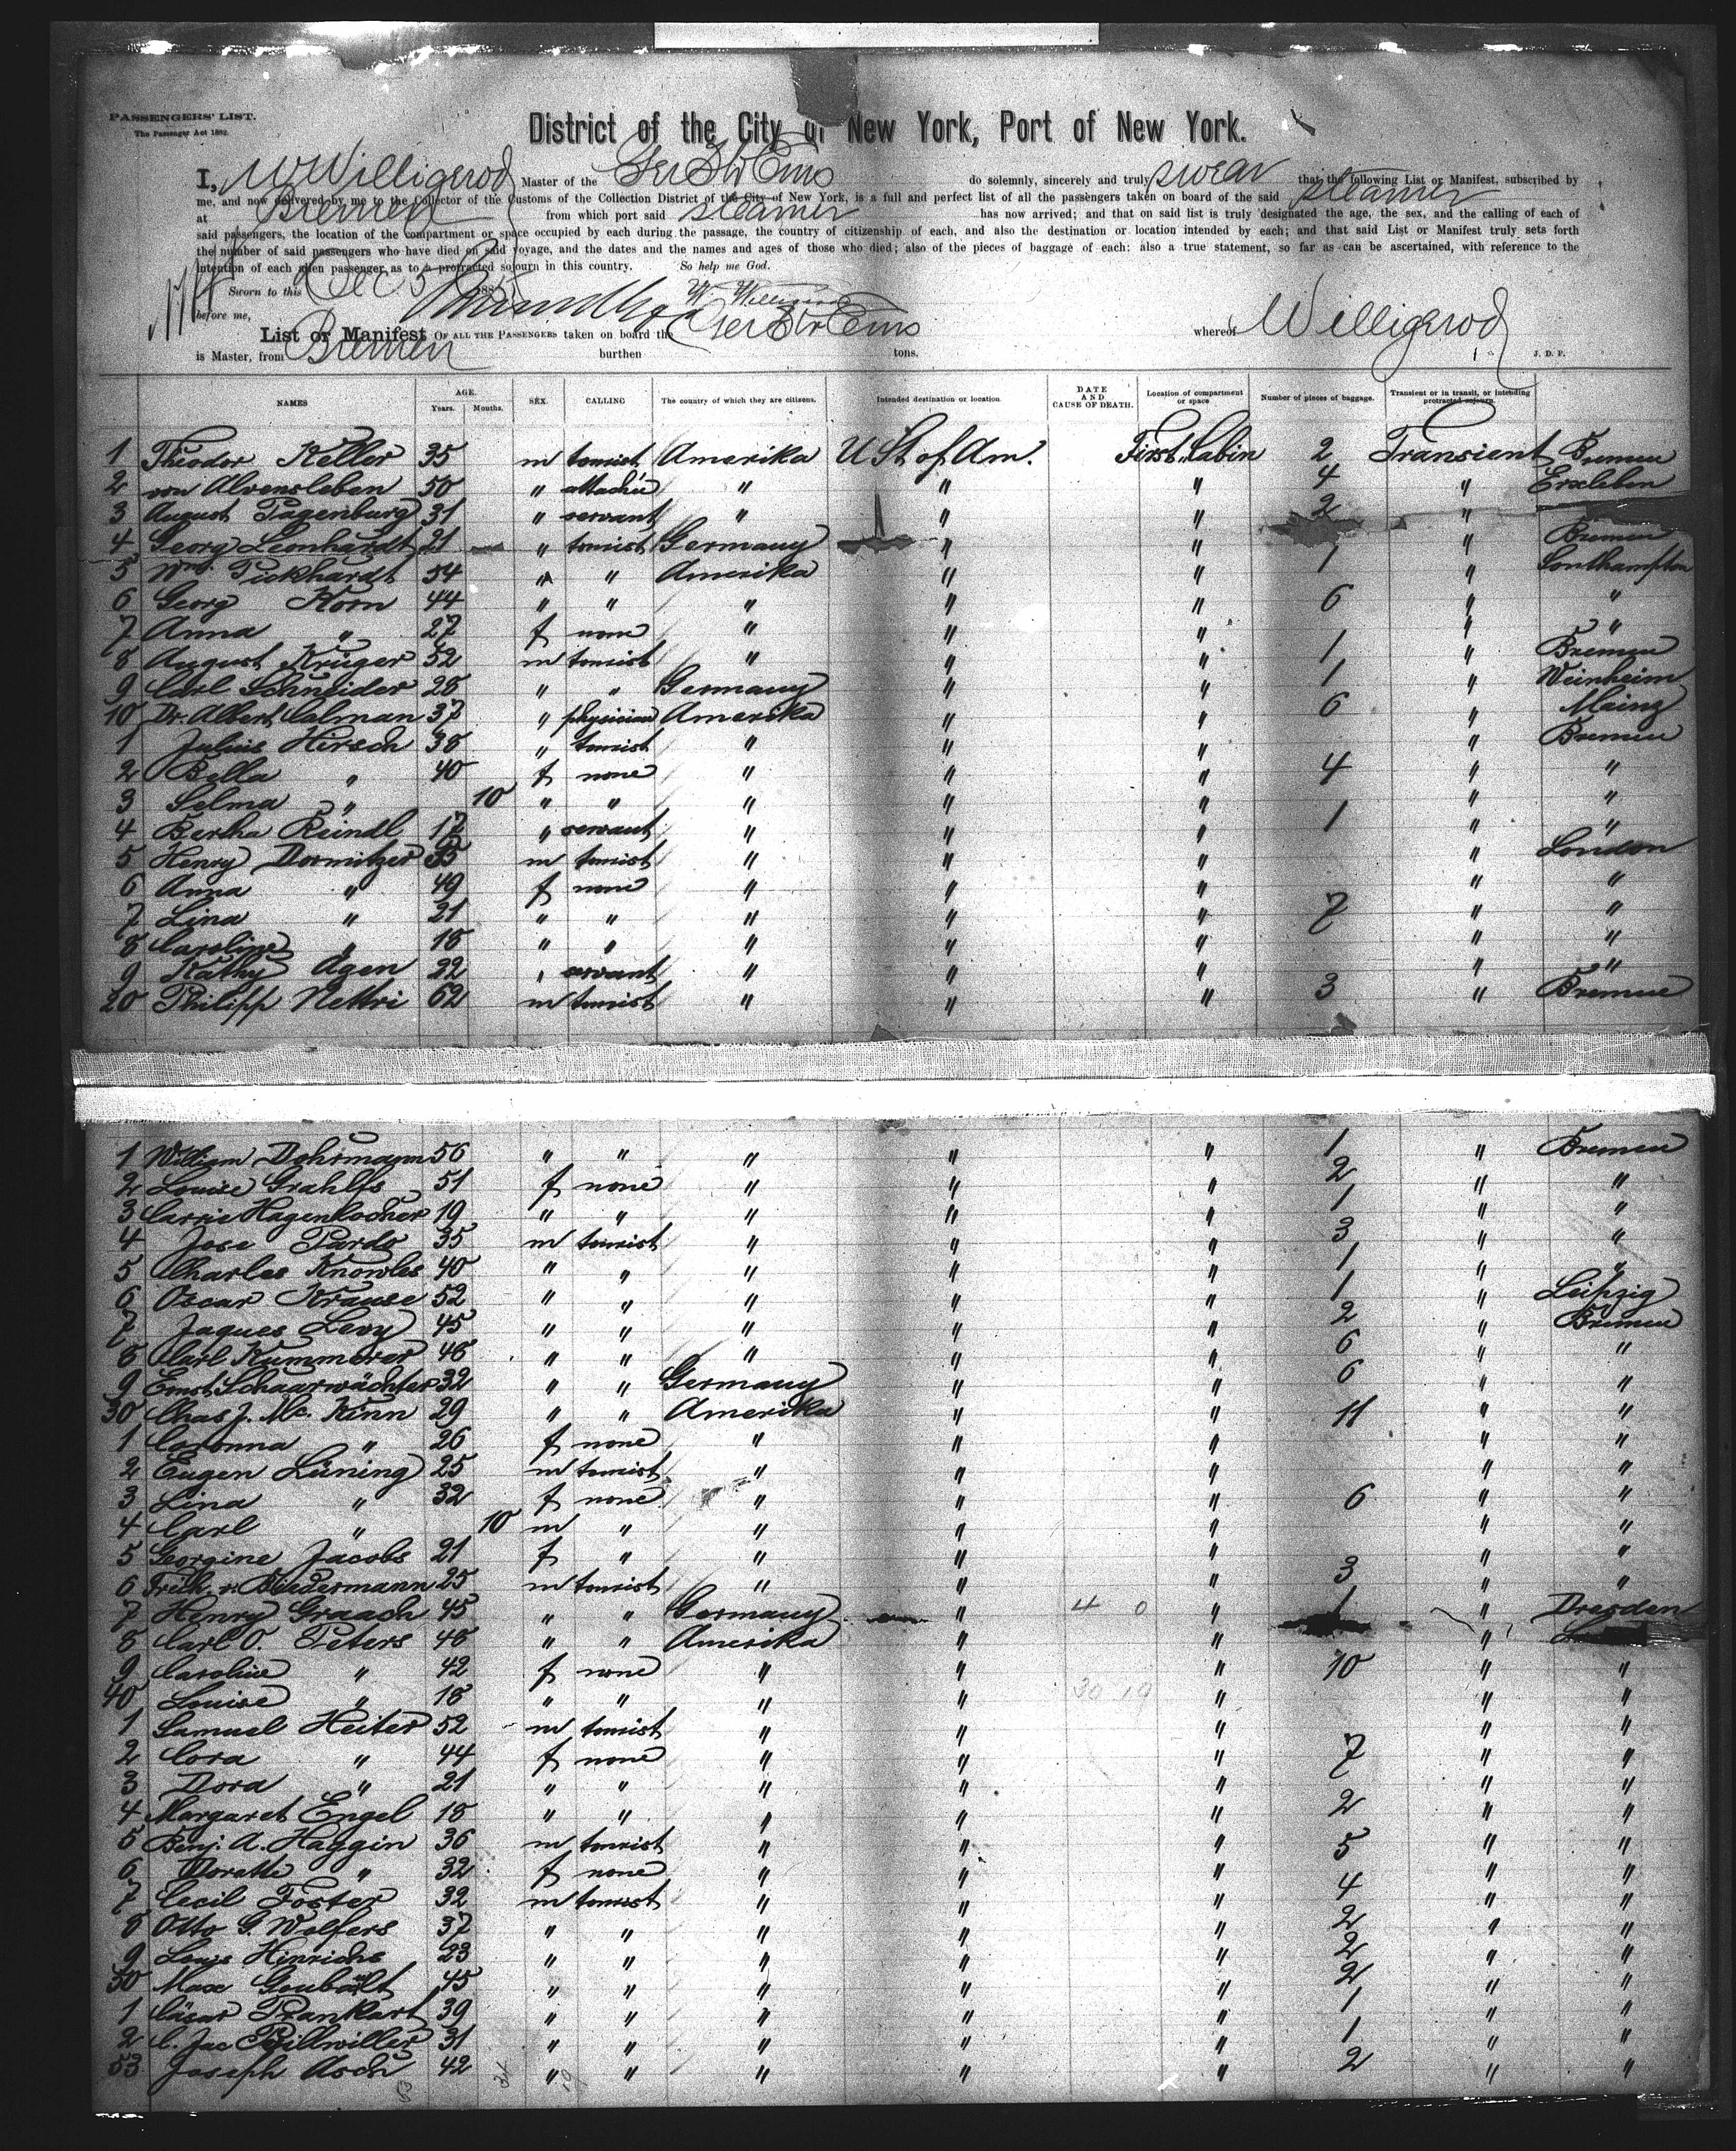 PASSENGERS' LIST.
The Passenger Act 1882.
District of the City of New York, Port of New York.
I, W Willigerod Master of the Ger Str Ems do solemnly, sincerely and truly swear that the following List or Manifest, subscribed by
me, and now delivered by me to the Collector of the Customs of the Collection District of the City of New York, is a full and perfect list of all the passengers taken on board of the said steamer
at Bremen from which port said steamer has now arrived; and that on said list is truly designated the age, the sex, and the calling of each of
said passengers, the location of the compartment or space occupied by each during the passage, the country of citizenship of each, and also the destination or location intended by each; and that said List or Manifest truly sets forth
the number of said passengers who have died on said voyage, and the dates and the names and ages of those who died; also of the pieces of baggage of each: also a true statement, so far as can be ascertained, with reference to the
intention of each alien passenger as to a protracted sojourn in this country. So help me God.
Sworn to this Dec 5 188
before me, W Willigerod
List or Manifest OF ALL THE PASSENGERS taken on board the Ger Str Ems whereof Willigerod
is Master, from Bremen burthen tons. J. D. P.
NAMES AGE. Years. Months. SEX. CALLING The country of which they are citizens. Intended destination or location. DATE AND CAUSE OF DEATH. Location of compartment or space Number of pieces of baggage. Transient or in transit, or intending protracted sojourn.
1 Theodor Keller 35 m tourist Amerika U St of Am. First Cabin 2 Transient Bremen
2 von Alvensleben 50 " attachée " " " 4 " Erxleben
3 August Pagenburg 31 " servant " " " 2 "
4 Georg Leonhardt 21 " tourist Germany " " " Bremen
5 Wm. Pickhardt 54 " " Amerika " " 1 " Southampton
6 Georg Korn 44 " " " " " 6 " "
7 Anna " 27 f none " " " " "
8 August Krüger 52 m tourist " " " 1 " Bremen
9 Carl Schneider 28 " " Germany " " 1 " Weinheim
10 Dr. Albert Calman 37 " physician Amerika " " 6 " Mainz
1 Julius Hirsch 38 " tourist " " " " Bremen
2 Bella " 40 f none " " " 4 " "
3 Selma " 10 " " " " " " "
4 Bertha Reindl 17 " servant " " " 1 " "
5 Henry Dormitzer m tourist " " " " London
6 Anna " 49 f none " " " " "
7 Lina " 21 " " " " " 7 " "
8 Caroline " 18 " " " " " " "
9 Käthy Agen 22 " servant " " " " "
20 Philipp Nettri 62 m tourist " " " 3 " Bremen
1 William Dohrmann 56 " " " " " 1 " Bremen
2 Louise Grahlfs 51 f none " " " 2 " "
3 Carrie Hagenlocher 19 " " " " " 1 " "
4 Jose Pardo 35 m tourist " " " 3 " "
5 Charles Knowles 40 " " " " " 1 " "
6 Oscar Krause 52 " " " " " 1 " Leipzig
7 Jaques Levy 45 " " " " " 2 " Bremen
8 Carl Kummerer 48 " " " " " 6 " "
9 Ernst Schaarwächter 32 " " Germany " " 6 " "
30 Chas J. Mc. Kinn 29 " " Amerika " " 11 " "
1 Caronna " 26 f none " " " " "
2 Eugen Lüning 25 m tourist " " " " "
3 Lina " 32 f none " " " 6 " "
4 Carl " 10 m " " " " " "
5 Georgine Jacobs 21 f " " " " " "
6 Freih. v. Biedermann 25 m tourist " " " 3 " "
7 Henry Graach 45 " " Germany " 4 0 " 1 " Dresden
8 Carl O. Peters 48 " " Amerika " " "
9 Caroline " 42 f none " " " 10 " "
40 Louise " 18 " " " " 30 19 " " "
1 Samuel Heiter 52 m tourist " " " " "
2 Cora " 44 f none " " " 7 " "
3 Dora " 21 " " " " " " "
4 Margaret Engel 18 " " " " " 2 " "
5 Benj. A. Haggin 36 m tourist " " " 5 " "
6 " 32 f none " " " " "
7 Cecil Foster 32 m tourist " " " 4 " "
8 Otto G. Wolfers 37 " " " " " 2 " "
9 Louis Hinrichs 23 " " " " " 2 " "
50 Max 45 " " " " " 2 " "
1 Cäsar Prankart 39 " " " " " 1 " "
2 C. Jac Billwiller 31 " " " " " 1 " "
53 Joseph Asch 42 " " " " " 2 " "